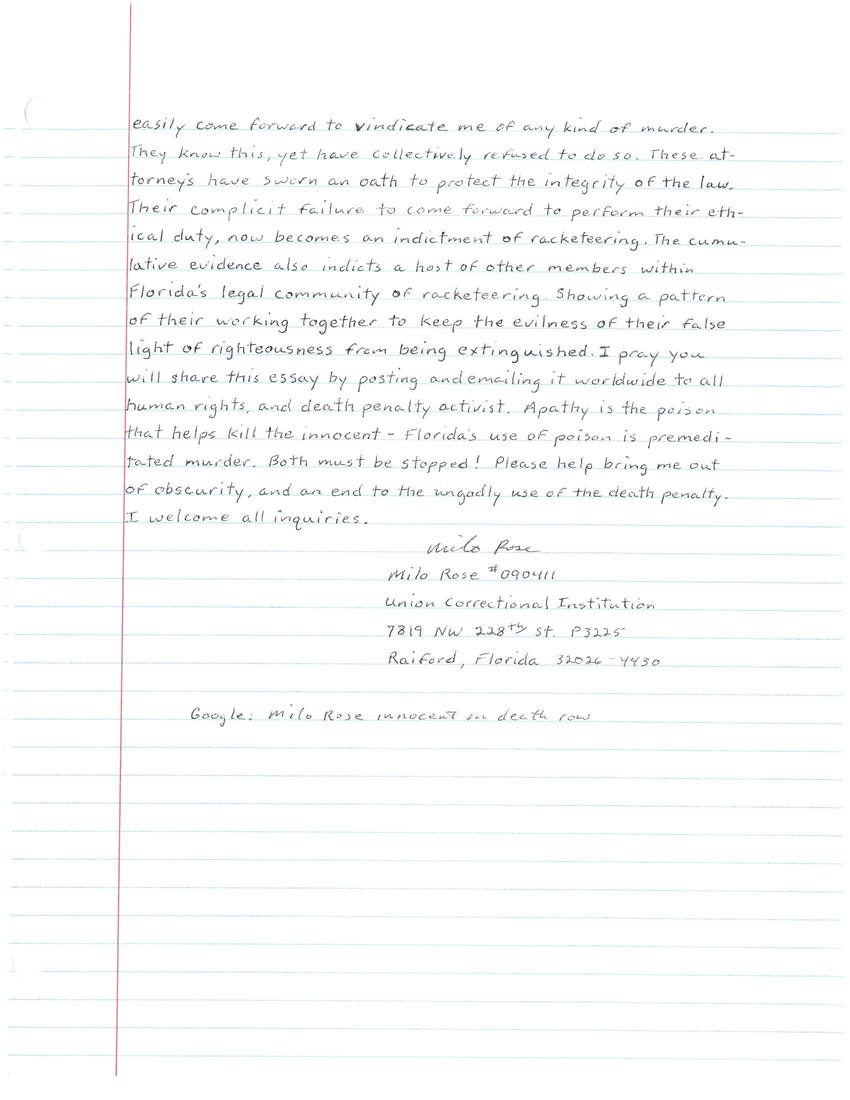 easily come forward to vindicate me of any kind of murder.
They know this, yet have collectively refused to do so. These at-
torney's have sworn an oath to protect the integrity of the law.
Their complicit failure to come forward to perform their eth-
ical duty, now becomes an indictment of racketeering. The cumu-
lative evidence also indicts a host of other members within
Florida's legal community of racketeering. Showing a pattern
of their working together to keep the evilness of their false
light of righteousness from being extinguished. I pray you
will share this essay by posting and emailing it worldwide to all
human rights, and death penalty activist. Apathy is the poison
that helps kill the innocent - Florida's use of poison is premedi-
tated murder. Both must be stopped! Please help bring me out
of obscurity, and an end to the ungodly use of the death penalty.
I welcome all inquiries.
Milo Rose
Milo Rose #090411
Union Correctional Institution
7819 NW 228th St. P3225
Raiford, Florida 32026-4430
Google: Milo Rose innocent on death row